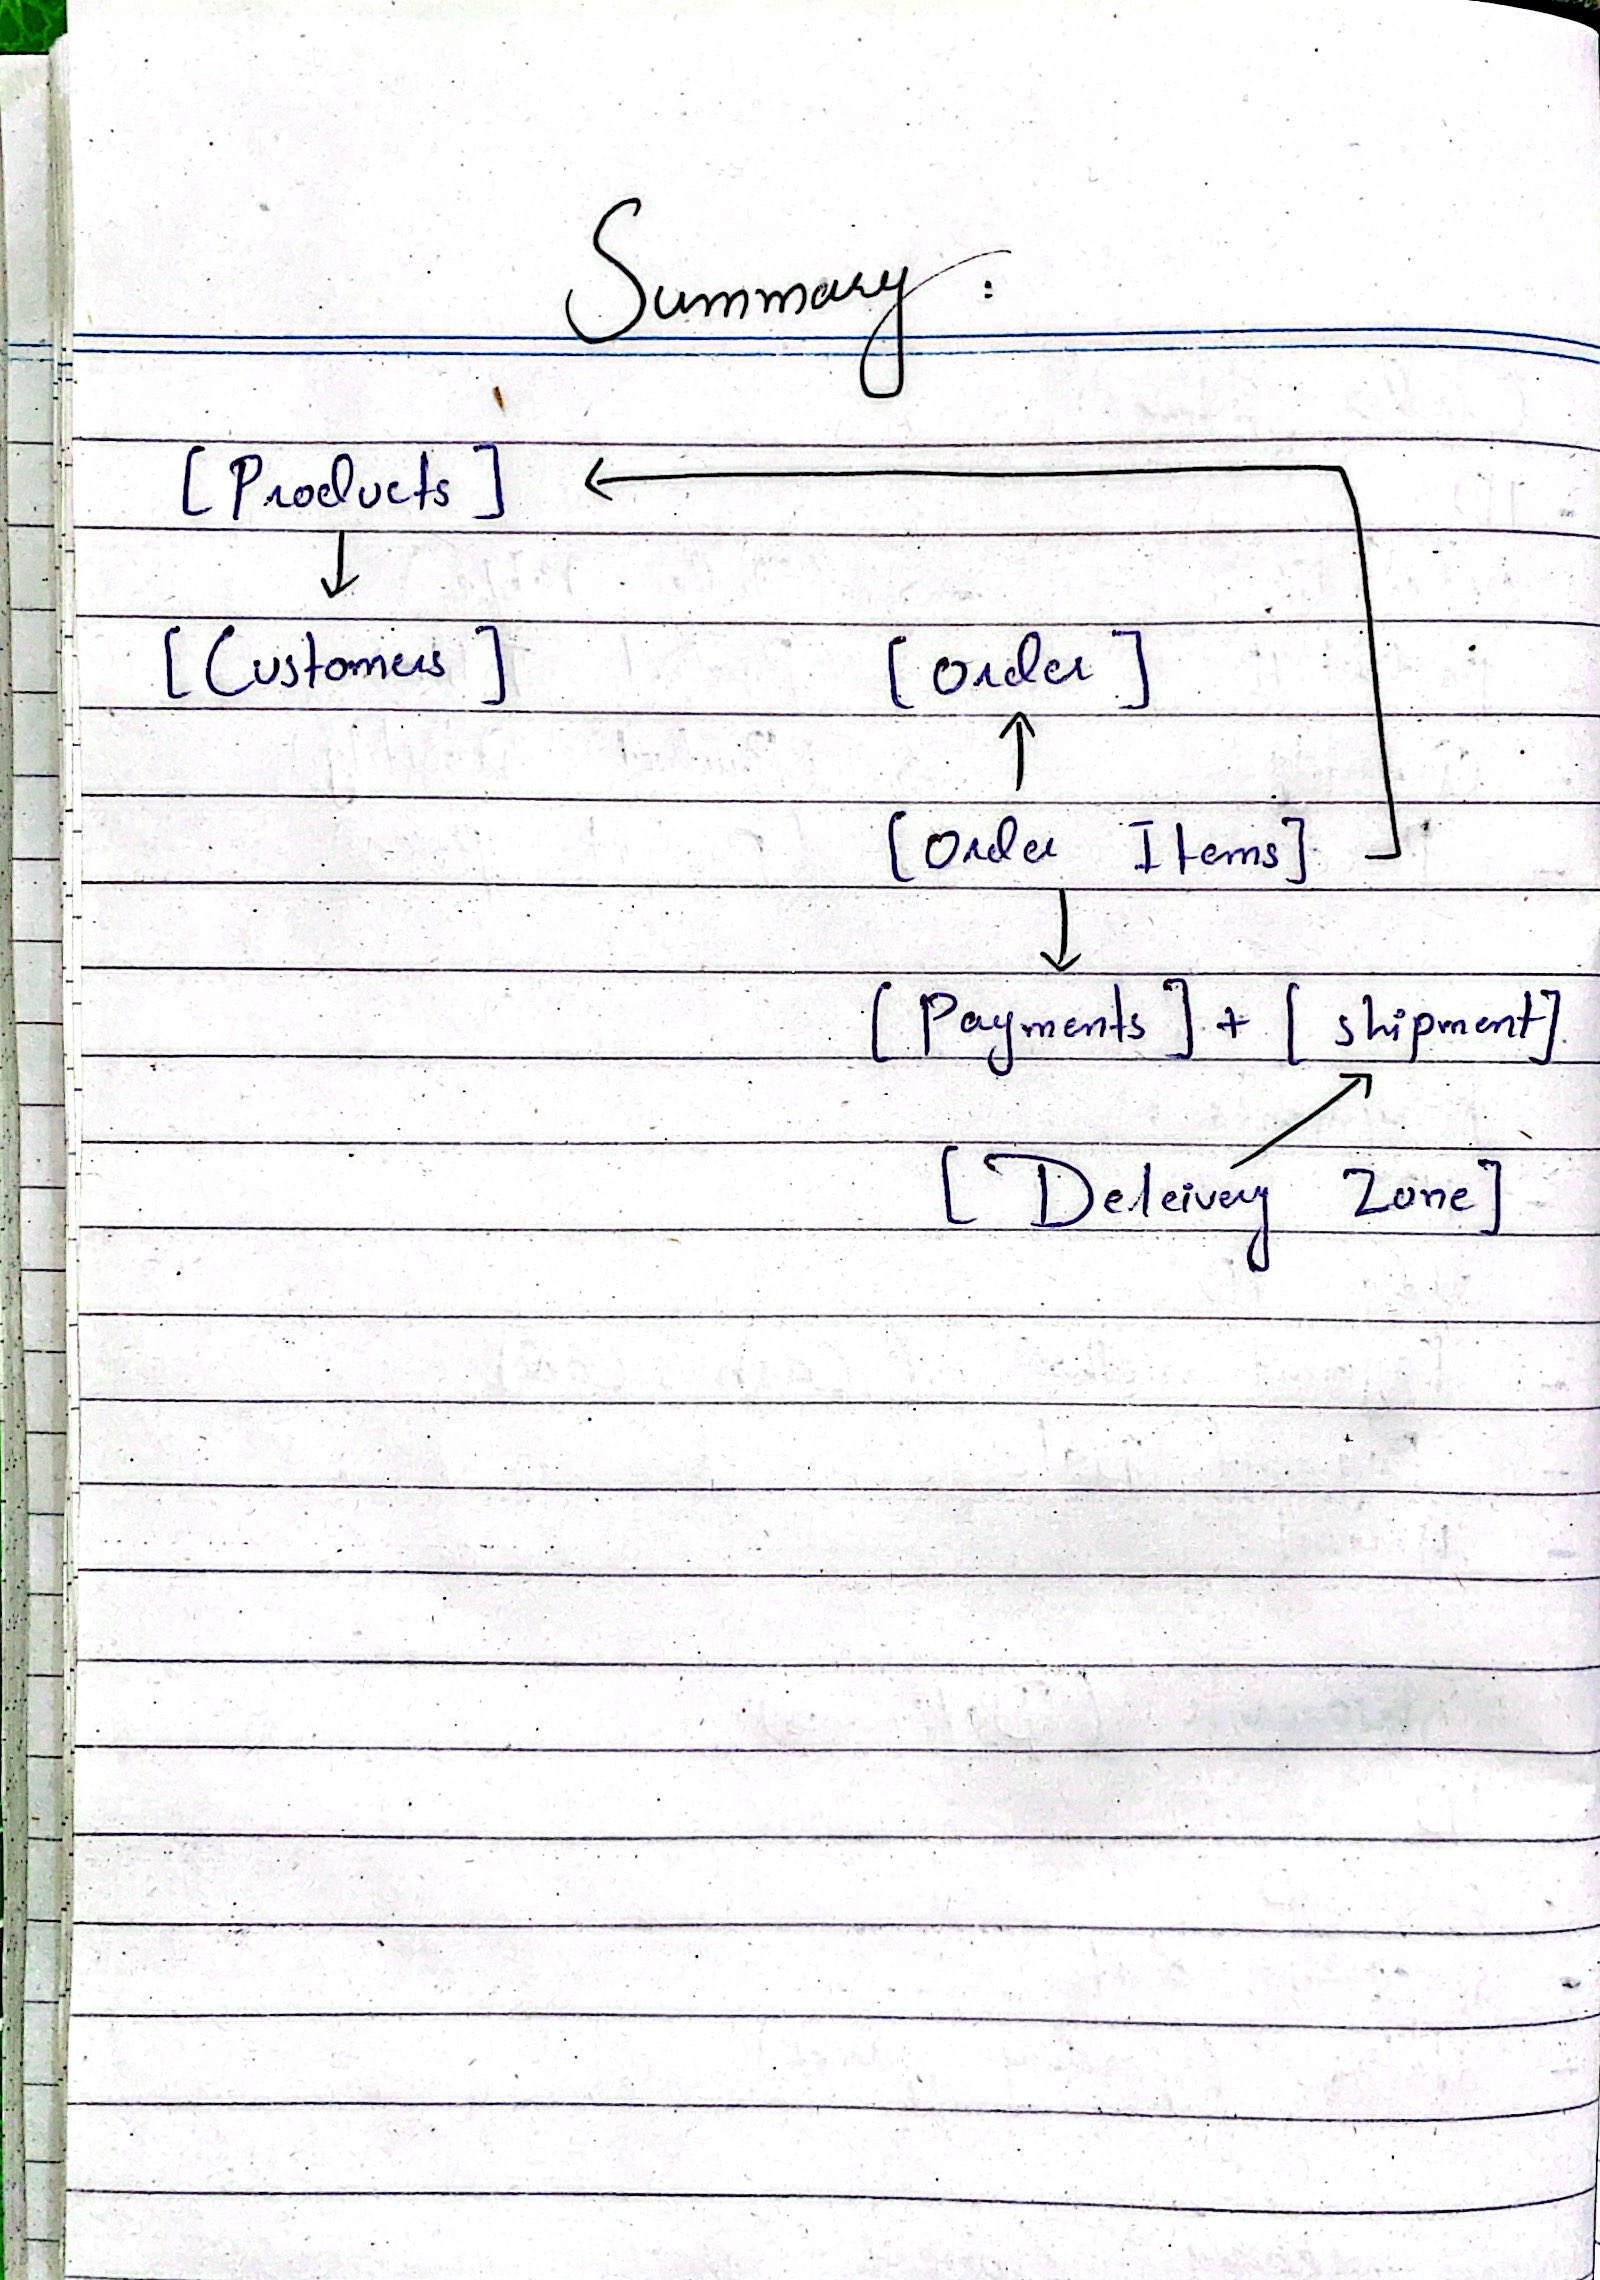 Summary :
[ Products ]
[ Customers ] [ Order ]
[ Order Items ]
[ Payments ] + [ shipment ]
[ Deleivery Zone ]